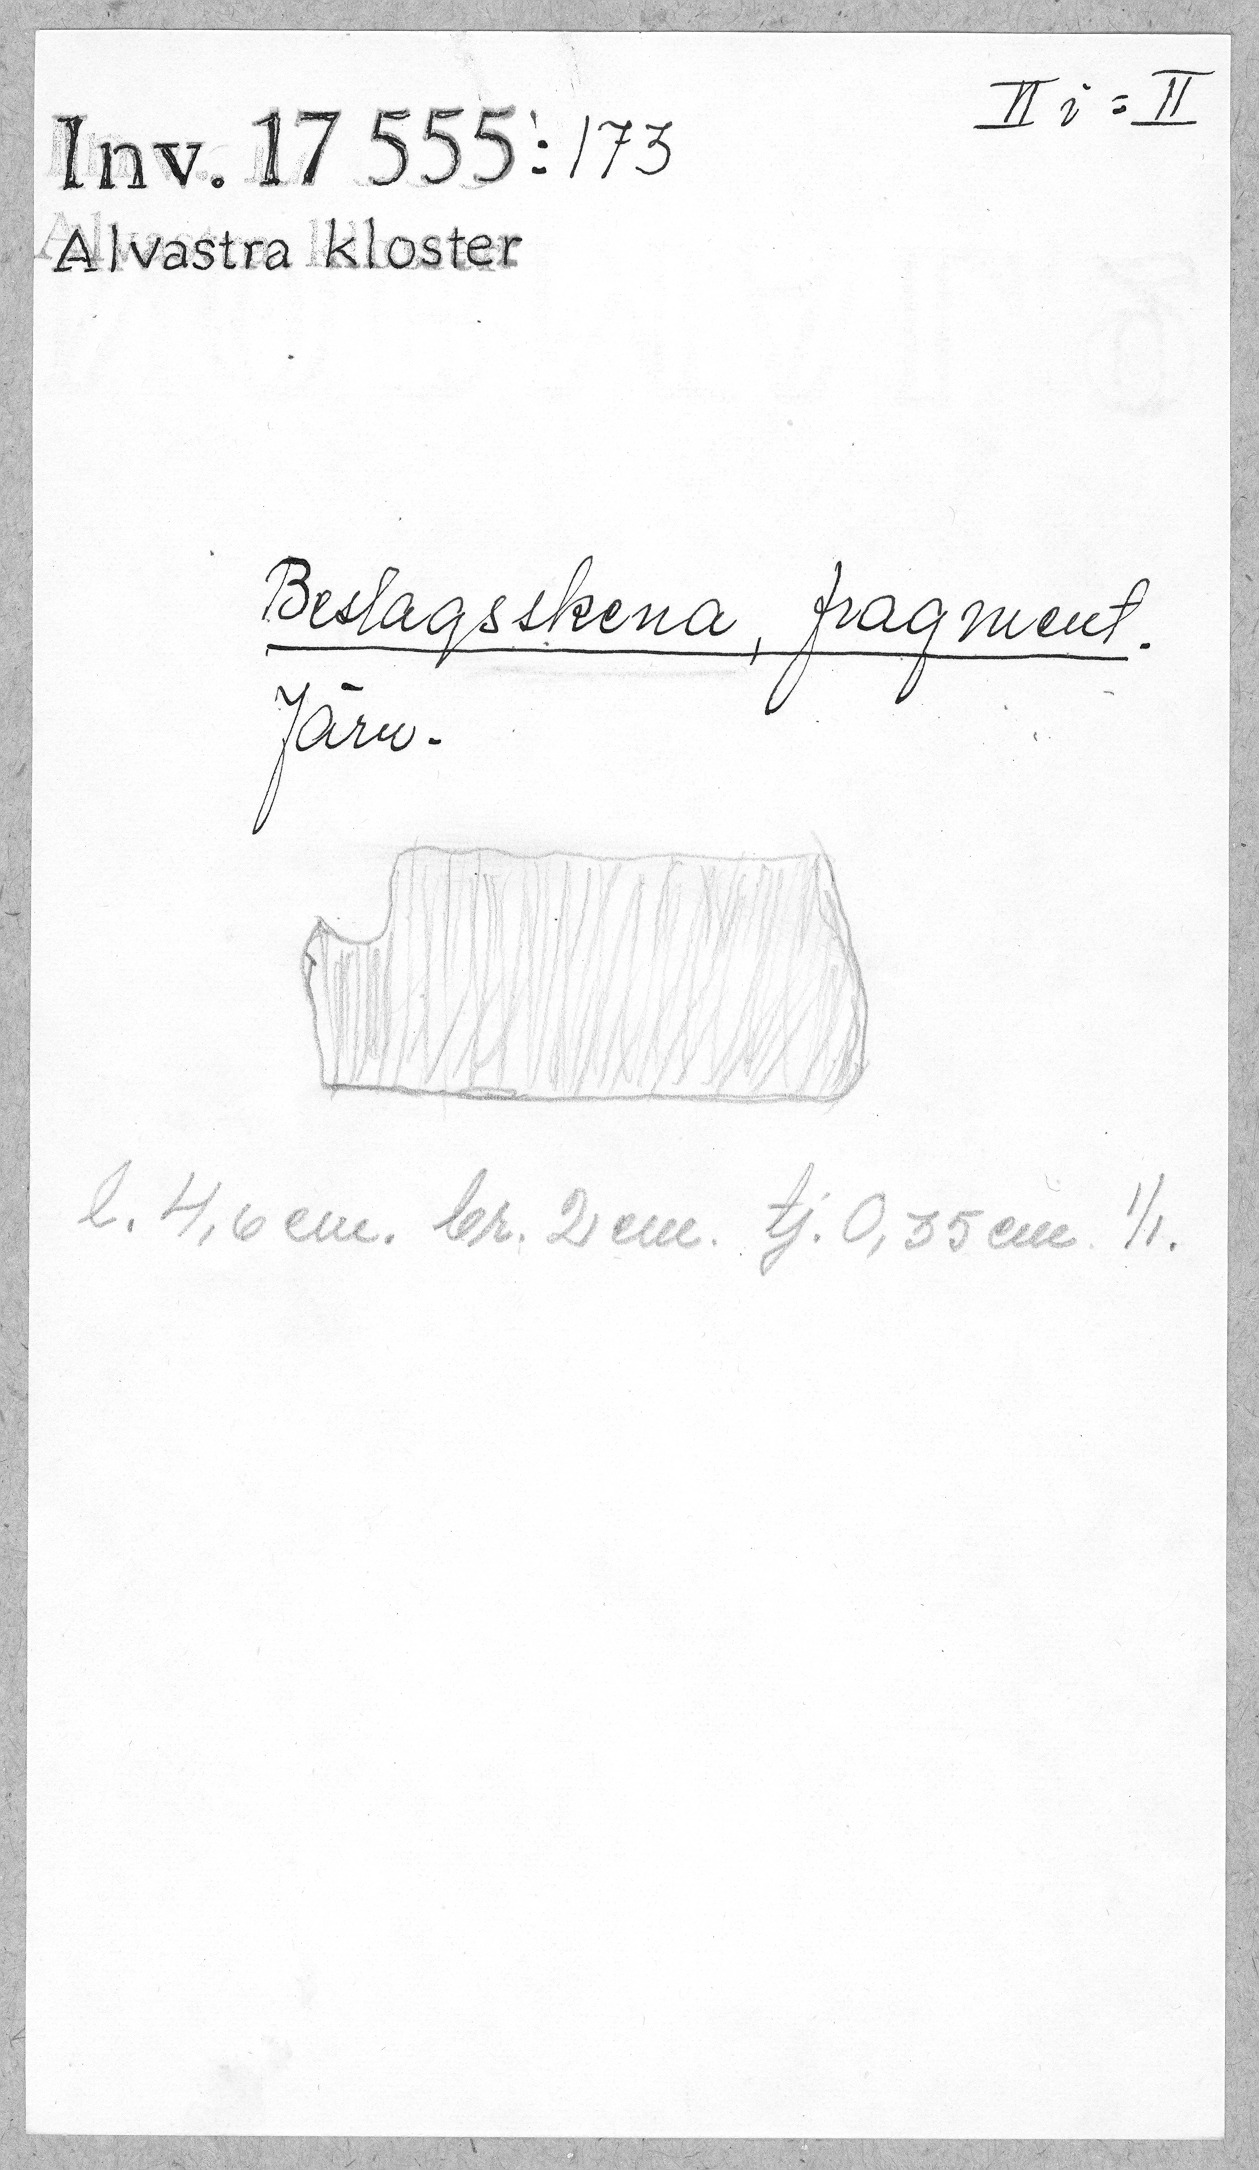 II i = II
Inv. 17 555:173
Alvastra kloster
Beslagsskena, fragment.
Järn.
l. 4,6 cm. br. 2 cm. tj. 0,35 cm. 1/1.